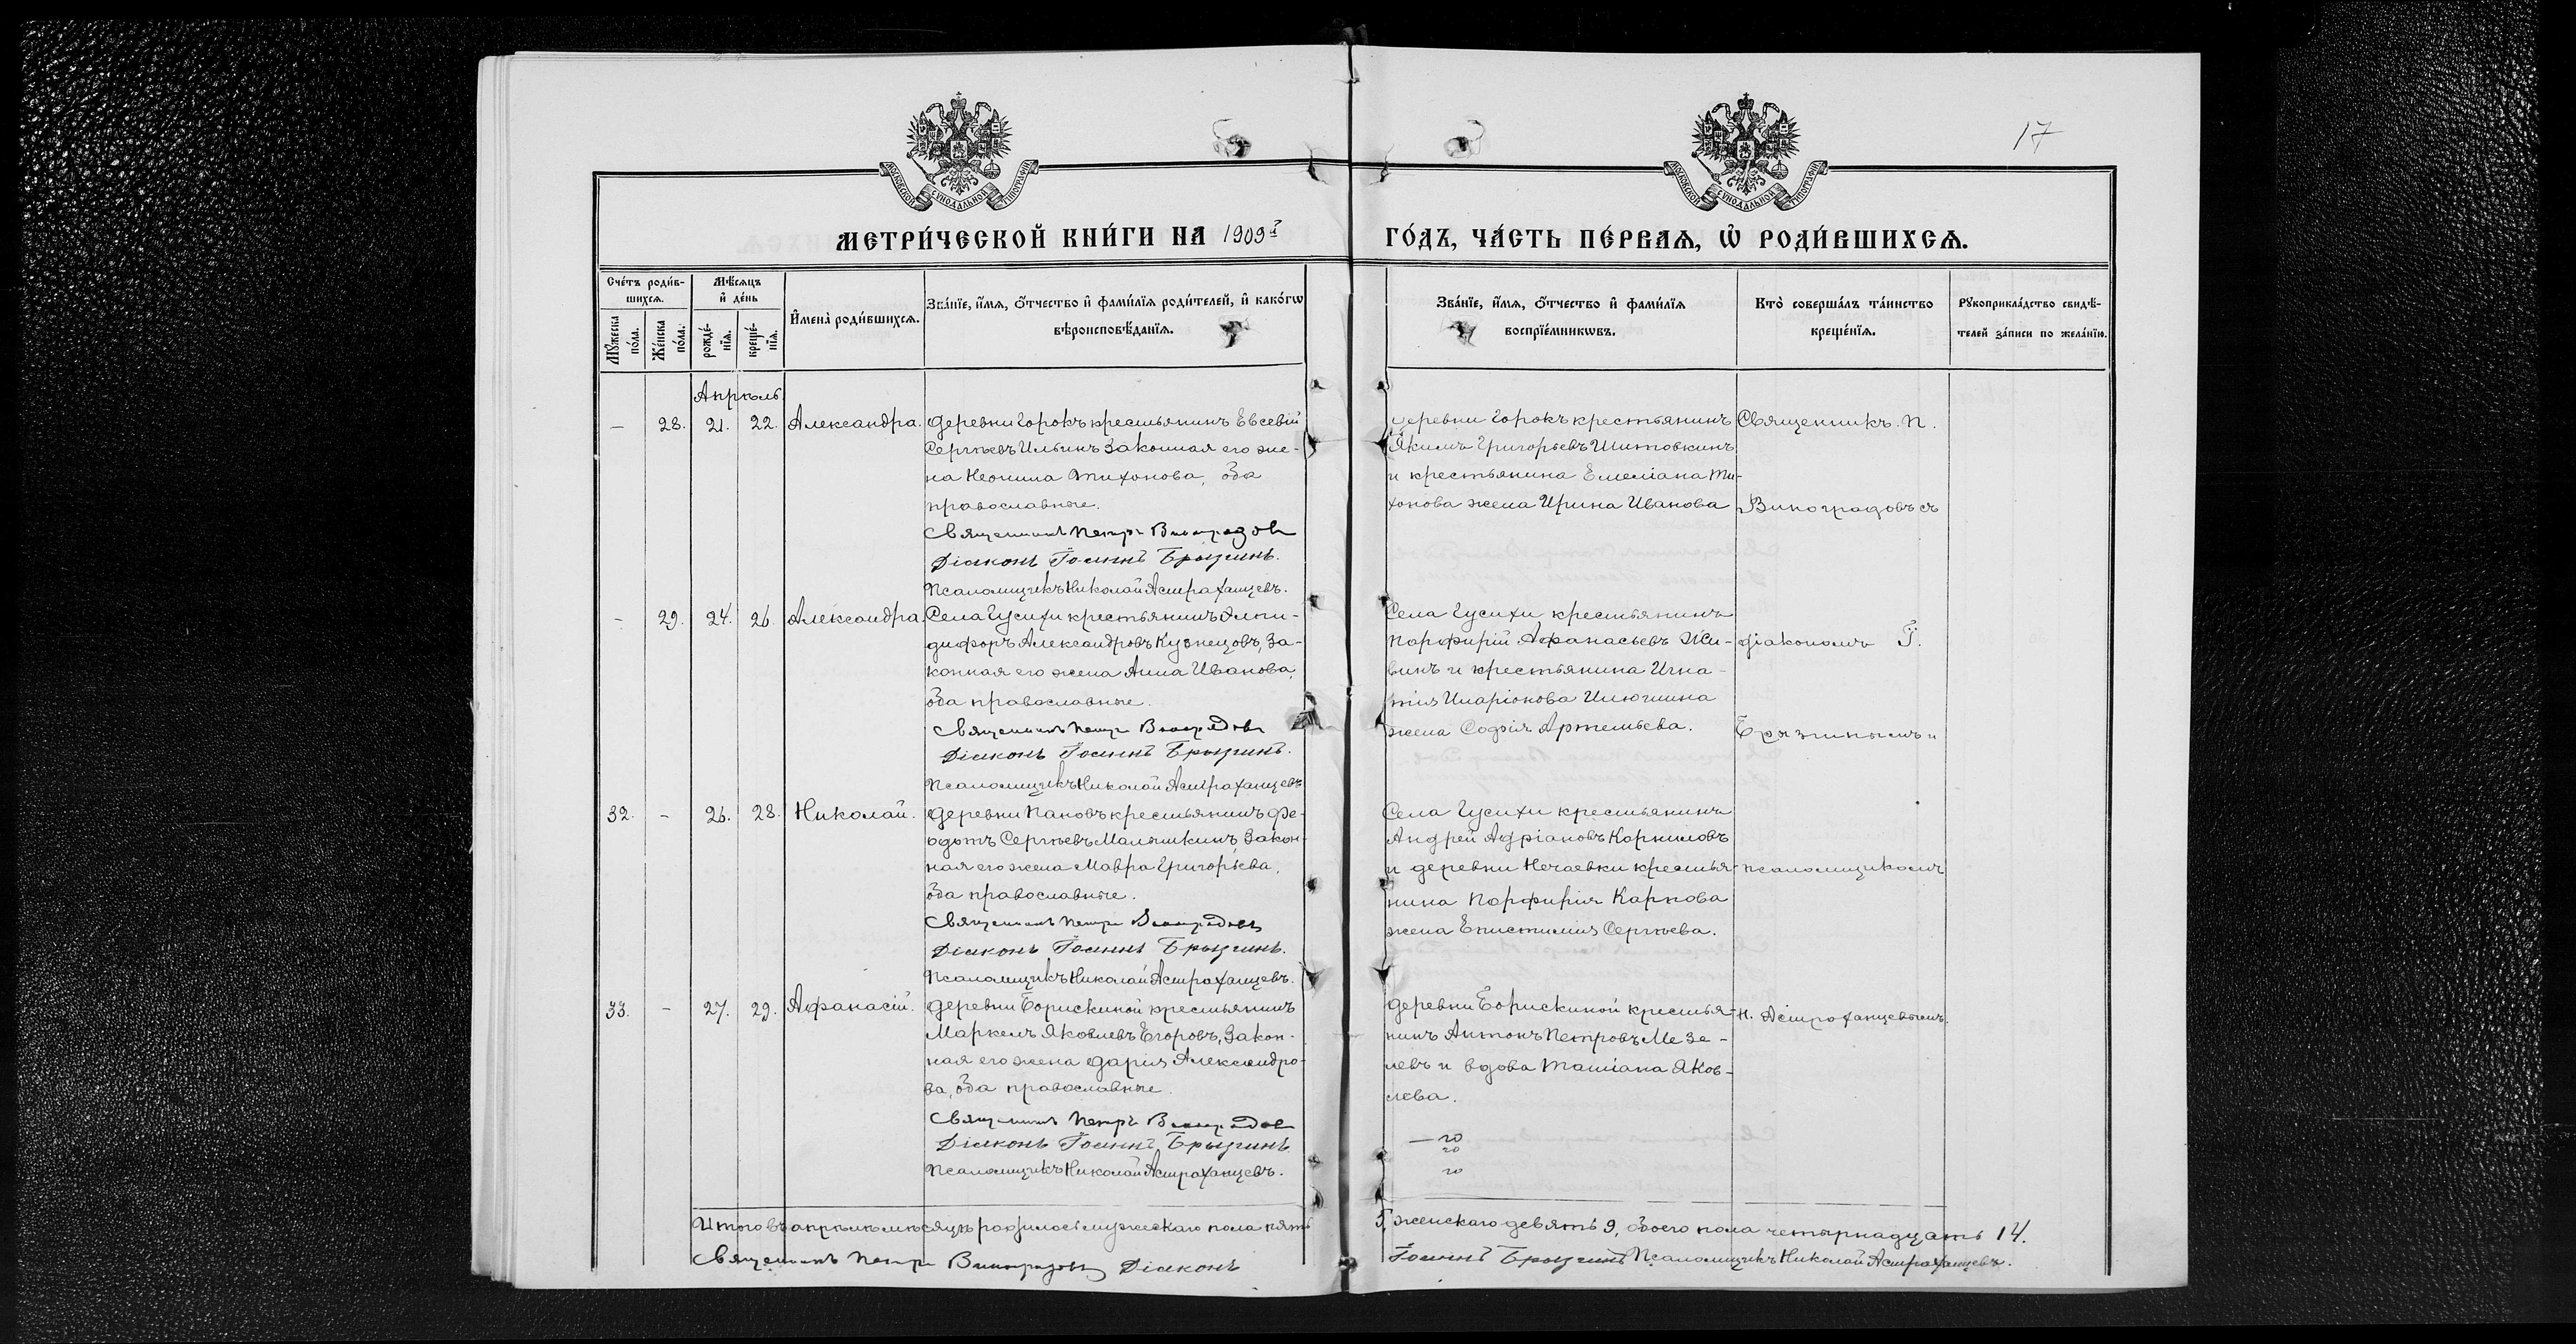 17
МОСКОВСКОЙ СУНОДАЛЬНОЙ ТИПОГРАФІИ
МОСКОВСКОЙ СУНОДАЛЬНОЙ ТИПОГРАФІИ
МЕТРИ́ЧЕСКОЙ КНИ́ГИ НА 1909й
ГО́ДЪ, ЧА́СТЬ ПЕ́РВАѦ, Ѿ РОДИ́ВШИХСѦ.
Сче́тъ роди́в-
шихсѧ.
Мꙋ́жеска
по́ла.
Же́нска
по́ла.
Мѣ́сѧцъ
и҆ де́нь
рожде́-
нїѧ.
креще́-
нїѧ.
И҆мена̀ роди́вшихсѧ.
Зва́нїе, и҆́мѧ, о҆́тчество и҆ фами́лїѧ роди́телей, и҆ како́гѡ
вѣроисповѣ́данїѧ.
Зва́нїе, и҆́мѧ, о҆́тчество и҆ фами́лїѧ
воспрїе́мникѡвъ.
Кто̀ соверша́лъ та́инство
креще́нїѧ.
Рꙋкоприкла́дство свидѣ́-
телей за́писи по жела́нїю.
Апрѣль.
— 28. 21. 22. Александра.
Деревни Горокъ крестьянинъ Евсевій
Сергѣевъ Ильинъ законная его же-
на Неонила Тихонова, оба
православные.
Священникъ Петръ Виноградовъ
Діаконъ Іоаннъ Брызгинъ.
Псаломщикъ Николай Астраханцевъ.
деревни Горокъ крестьянинъ
Якимъ Григорьевъ Шитовкинъ
и крестьянина Емеліана Ти-
хонова жена Ирина Иванова
Священникъ. П.
Виноградовъ съ
- 29. 24. 26. Александра
Села Гусихи крестьянинъ Елпи-
дифоръ Александровъ Кузнецовъ, за-
конная его жена Анна Иванова,
оба православные.
Священникъ Петръ Виноградовъ
Діаконъ Іоаннъ Брызгинъ.
Псаломщикъ Николай Астраханцевъ
Села Гусихи крестьянинъ
Порфирій Афанасьевъ Жи-
винъ и крестьянина Игна-
тія Иларіонова Илюшина
жена Софія Артемьева.
діакономъ І.
32. - 26. 28. Николай.
Деревни Пановъ крестьянинъ Фе-
одотъ Сергѣевъ Малышкинъ, закон-
ная его жена Мавра Григорьева,
оба православные.
Священникъ Петръ Виноградовъ
Діаконъ Іоаннъ Брызгинъ.
Псаломщикъ Николай Астраханцевъ.
Села Гусихи крестьянинъ
Андрей Адріановъ Корниловъ
и деревни Нечаевки крестья-
нина Порфирія Карпова
жена Епистимія Сергѣева.
псаломщикомъ
33. - 27. 29. Афанасій.
Деревни Борискиной крестьянинъ
Маркелъ Яковлевъ Егоровъ, закон-
ная его жена Дарія Александро-
ва, оба православные.
Священникъ Петръ Виноградовъ
Діаконъ Іоаннъ Брызгинъ
Псаломщикъ Николай Астраханцевъ.
Деревни Борискиной крестья-
нинъ Антонъ Петровъ Мезе-
левъ и вдова Татіана Яков-
лева.
Н. Астраханцевымъ.
Итого въ апрѣлѣ мѣсяцѣ родилось мужескаго пола пять 5, женскаго девять 9, обоего пола четырнадцать 14.
Священникъ Петръ Виноградовъ Діаконъ Іоаннъ Брызгинъ Псаломщикъ Николай Астраханцевъ.